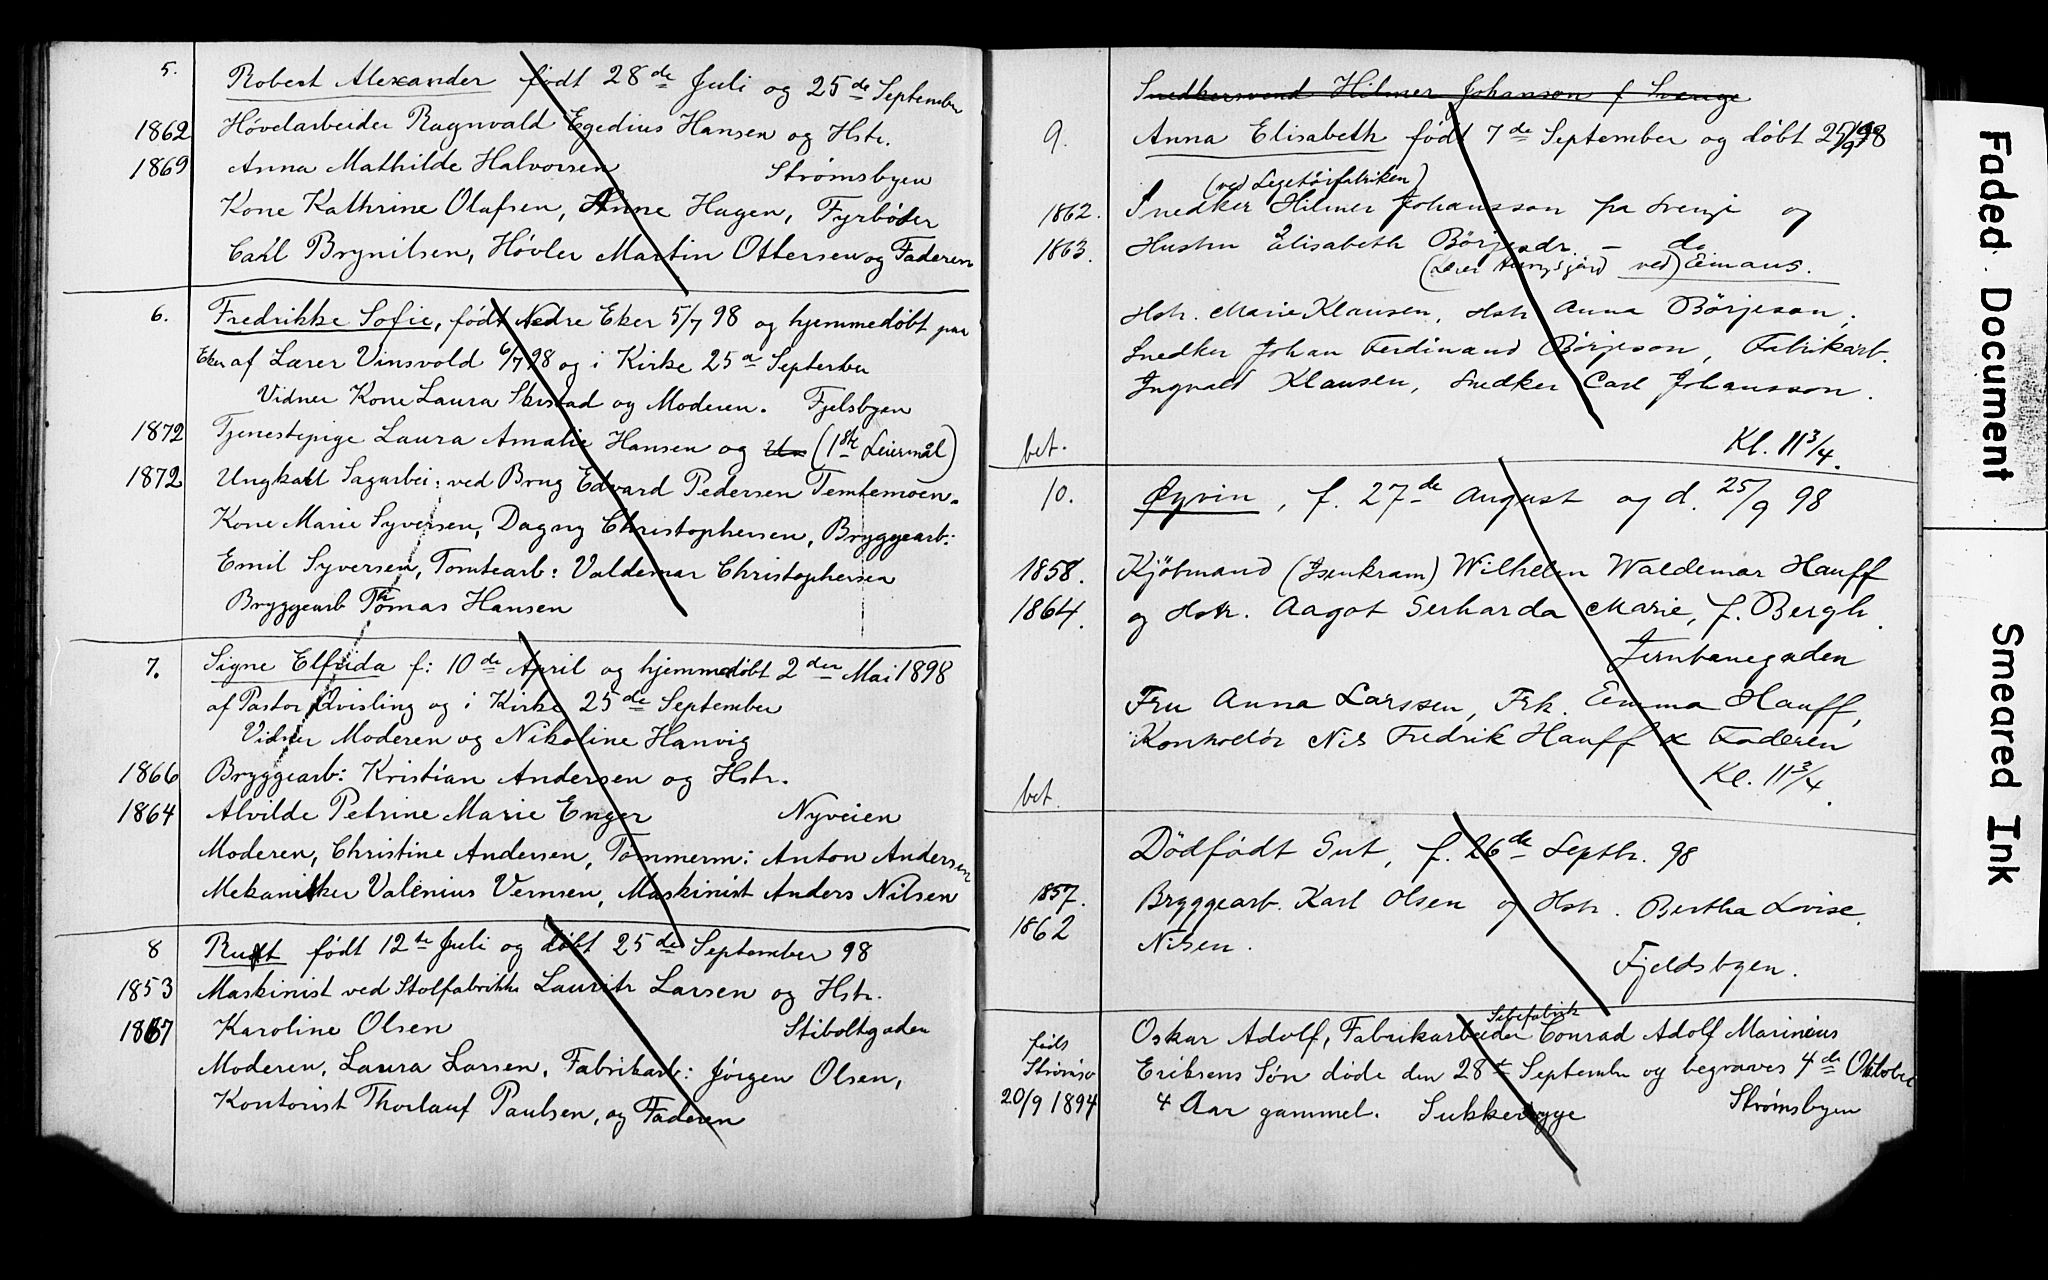 5.
Robert Alexander født 28de Juli og 25de September
1862 Høvelarbeider Ragnvald Egedius Hansen og Hstr.
1869 Anna Mathilde Halvorsen Strømsbyen
Kone Kathrine Olafsen, Anne Hagen, Fyrbøder
Carl Brynilsen, Høvler Martin Ottersen og Faderen
6. Fredrikke Sofie, født Nedre Eker 5/7 98 og hjemmedøbt paa
Eker af Lærer Vinsvold 6/7 98 og i Kirke 25de September
Vidner Kone Laura og Moderen. Fjelsbyen
1872 Tjenestepige Laura Amalie Hansen og (1ste Leiermål)
1872 Ungkarl Sagarbei: ved Brug Edvard Pedersen Temtemoen.
Kone Marie Syversen, Dagny Christophersen, Bryggearb:
Emil Syversen, Tomtearb: Valdemar Christophersen
Bryggearb Thomas Hansen
7. Signe Elfrida f: 10de April og hjemmedøbt 2den Mai 1898
af Pastor Qvisling og i Kirke 25de September
Vidner Moderen og Nikoline Hanvig
1866 Bryggearb: Kristian Andersen og Hstr.
1864 Alvilde Petrine Marie Enger Nyveien
Moderen, Christine Andersen, Tømmerm: Anton Andersen
Mekaniker Valenius Vernsen, Maskinist Anders Nilsen
8 Rut født 12te Juli og døbt 25de September 98
1853 Maskinist ved Stolfabrikke Lauritz Larsen og Hstr.
1867 Karoline Olsen Stiboltgaden
Moderen, Laura Larsen, Fabrikarb: Jörgen Olsen,
Kontorist Thorlauf Paulsen, og Faderen
Snedkersvend Hilmer Johanson f Sverige
9. Anna Elisabeth født 7de September og døbt 25/9 98
(ved Legetøifabriken)
1862. Snedker Hilmer Johansson fra og
1863. Hustru Elisabeth Börjesdr – do
ved) Eimans.
Hstr. Marie Klausen, Hstr Anna Börjeson,
Snedker Johan Ferdinand Börjeson, Fabrikarb.
Ingvald Klausen, Snedker Carl Johansson.
bet. Kl. 11 3/4.
10. Øyvin, f. 27de August og d. 25/9 98
1858. Kjöbmand (Isenkram) Wilhelm Waldemar Hauff
1864. og Hstr. Aagot Gerharda Marie, f. Bergh.
Jernbanegaden
Fru Anna Larssen, Frk. Emma Hauff,
Kontrolör Nils Fredrik Hauff & Faderen
Kl. 11 3/4.
bet.
Dödfödt Gut, f. 26de Septbr. 98
1857. Bryggearb. Karl Olsen og Hstr. Bertha Lovise
1862 Nilsen.
Fjeldsbyen.
Sebefabrik
Oskar Adolf, Fabrikarbeider Conrad Adolf Marinius
föds
Strømsø Eriksens Søn døde den 28de September og begraves 4de Oktober
20/9 1894 4 Aar gammel. Sukkersyge Strømsbyen
Faded Document
Smeared Ink